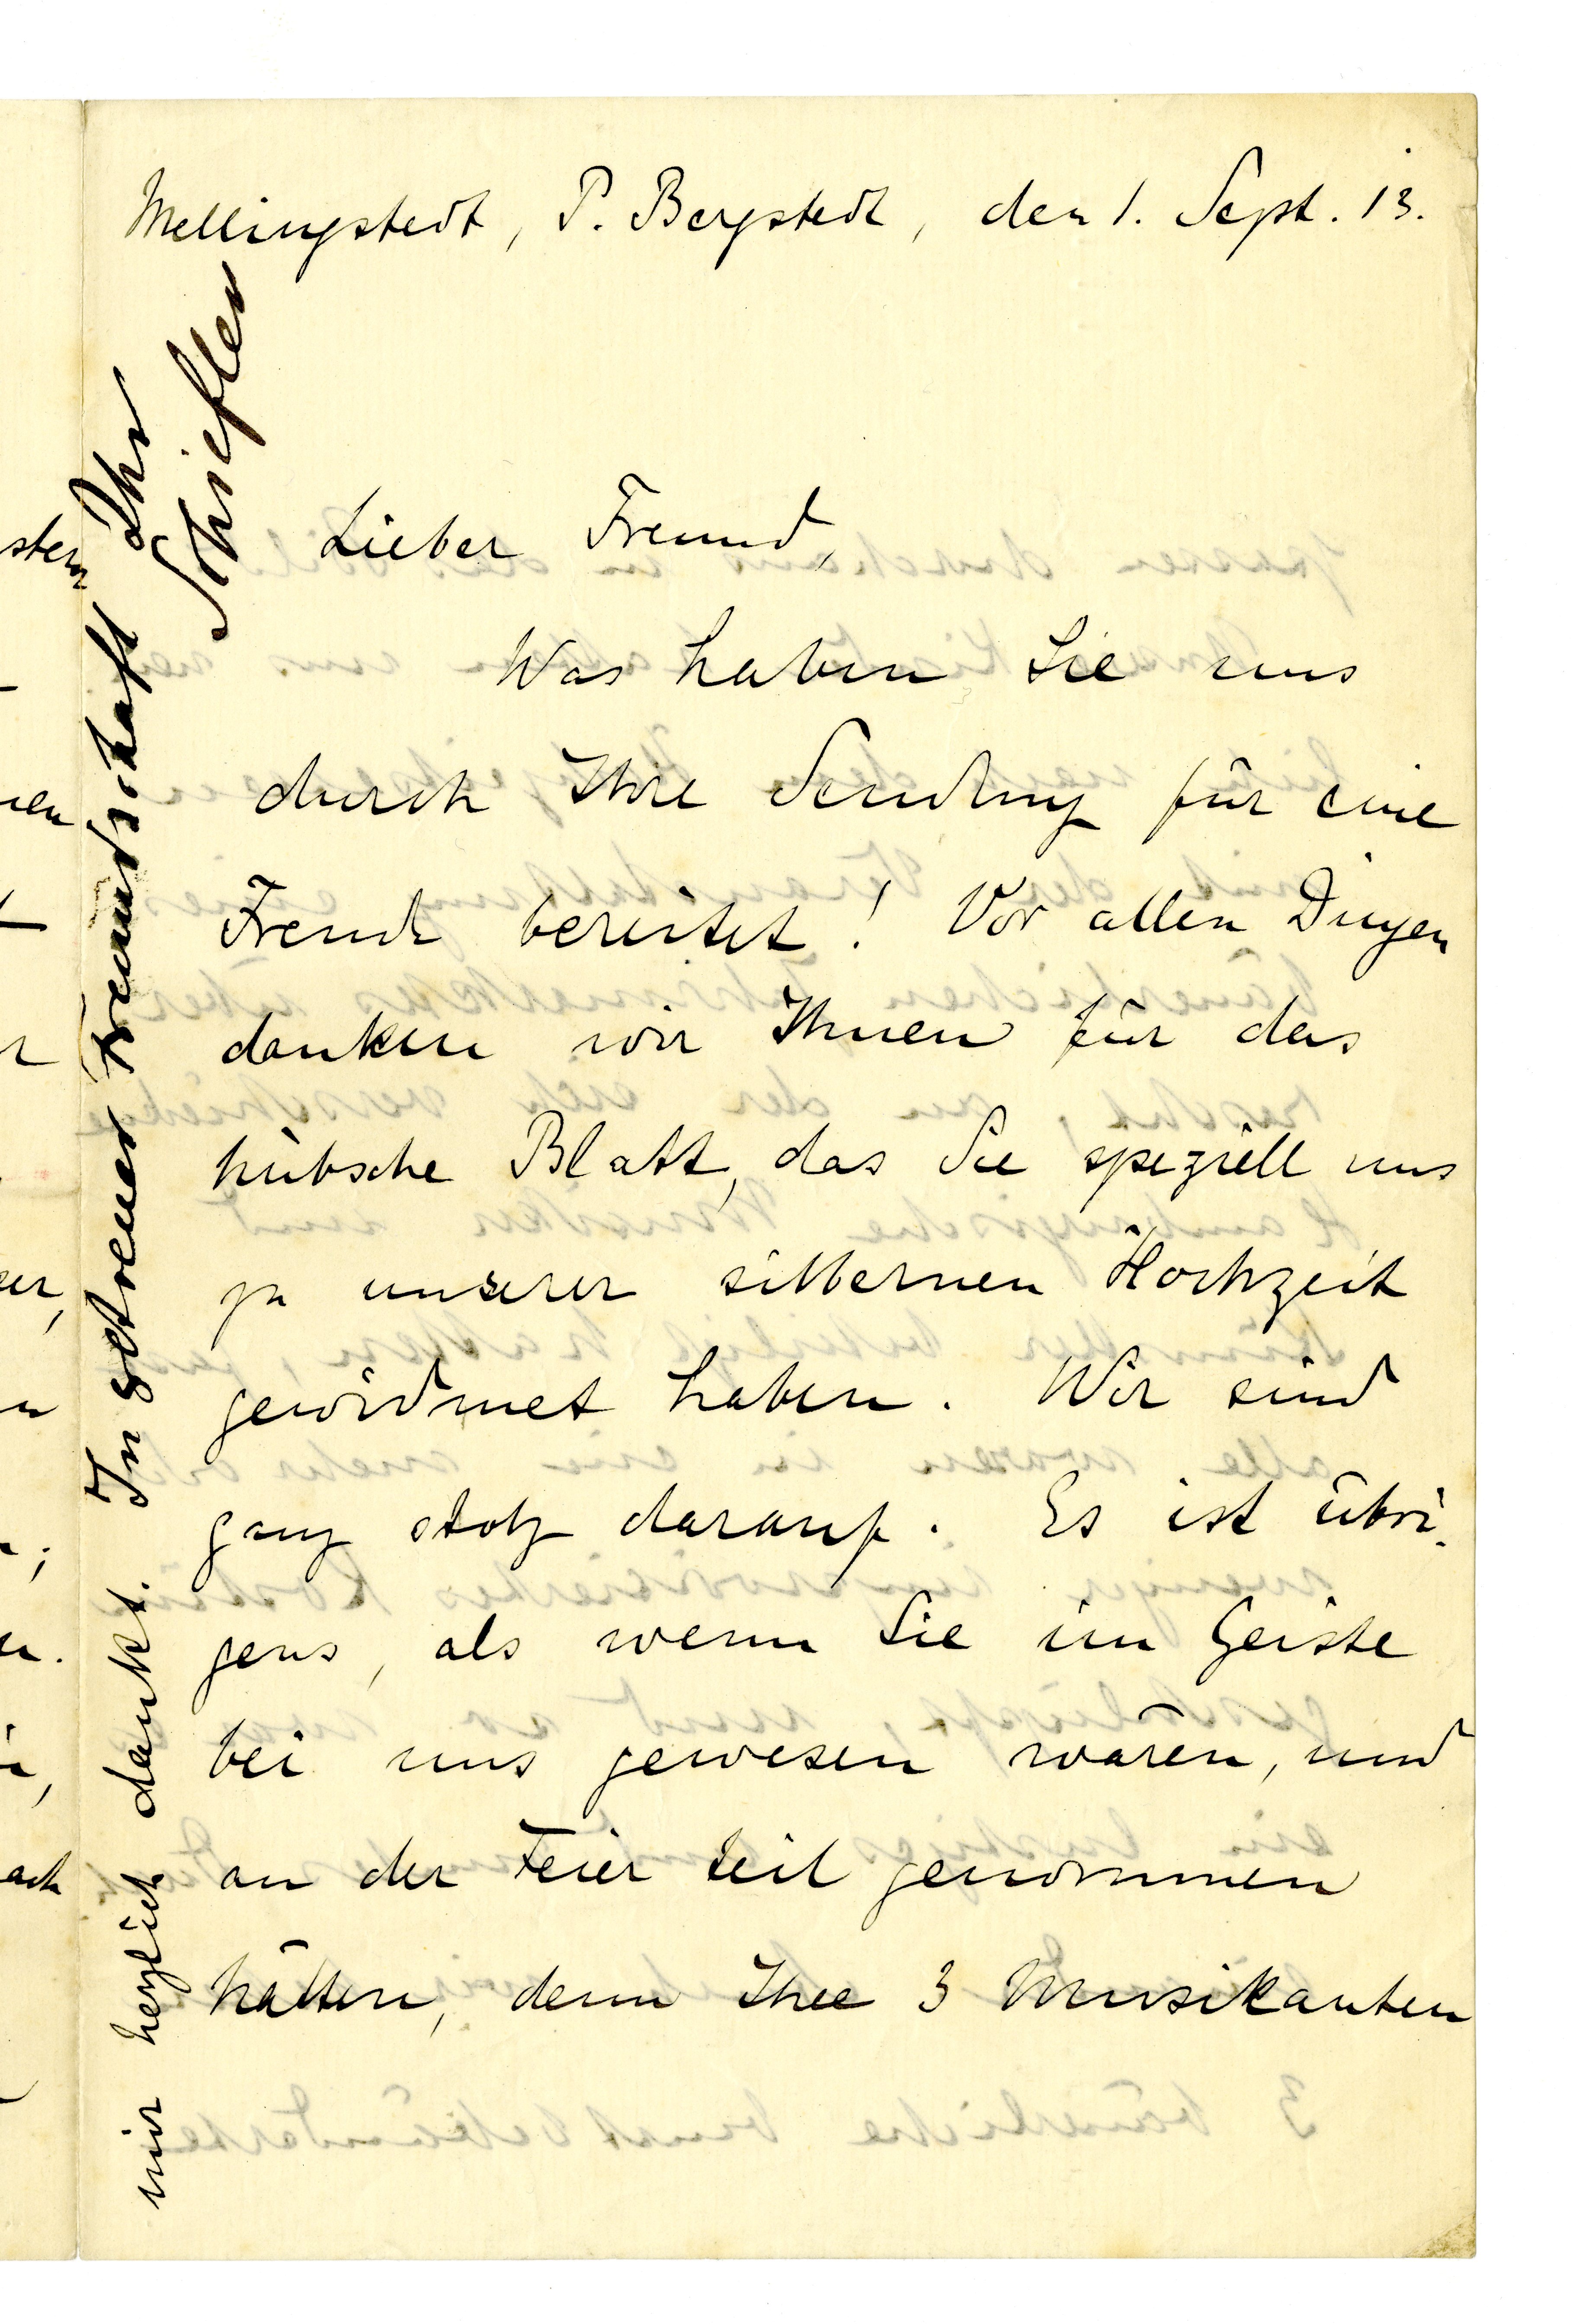 Mellingstedt, P. Bergstedt, den 1. Sept. 13.
Lieber Freund,
Was haben Sie uns
durch Ihre Sendung für eine
Freude bereitet! Vor allen Dingen
danken wir Ihnen für das
hübsche Blatt, das Sie speziell uns
zu unserer silbernen Hochzeit
gewidmet haben. Wir sind
ganz stolz darauf. Es ist übri-
gens, als wenn Sie im Geiste
bei uns gewesen wären, und
an der Feier teil genommen
hätten, denn Ihre 3 Musikanten
mir herzlich dankt. In getreuer Freundschaft Ihr
Schiefler